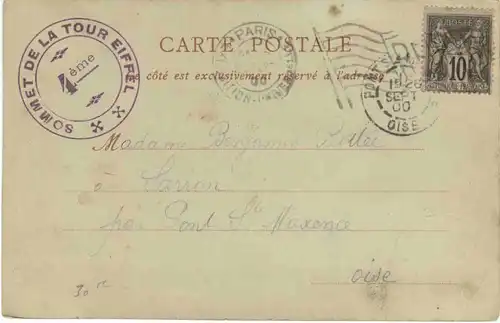 SOMMET DE LA TOUR EIFFEL
4ème
PARIS
00
CARTE POSTALE
côté est exclusivement réservé à l'adresse
10
PONT
19
SEPT
00
OISE
Madame Benjamin
à Sarron
Pont Ste Maxence
Oise
30